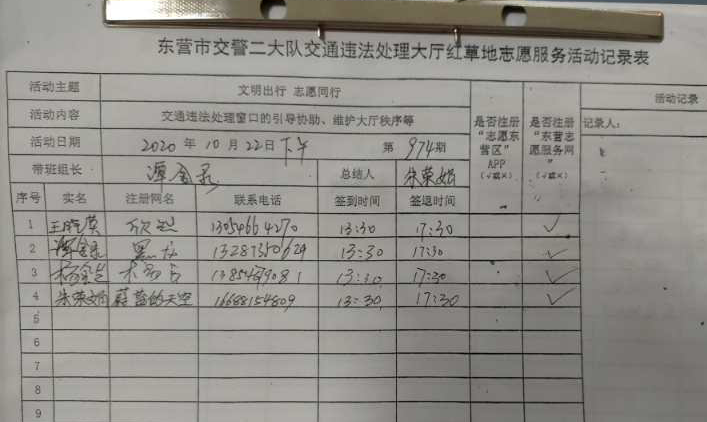 东营市交警二大队交通违法处理大厅红草地志愿服务活动记录表
活动主题 文明出行 志愿同行
活动内容 交通违法处理窗口的引导协助、维护大厅秩序等
活动日期 2020 年 10 月 22日 下午 第 974期
带班组长 总结人 朱荣娟
是否注册“志愿东营区”APP（√或×）
是否注册“东营志愿服务网”（√或×）
活动记录
记录人：
序号 实名 注册网名 联系电话 签到时间 签退时间
1 王晓英 欣然 13:30 17:30 √
2 13:30 17:30 √
3 13:30 17:30 √
4 朱荣娟 蔚蓝的天空 16688154809 13:30 17:30 √
5
6
7
8
9